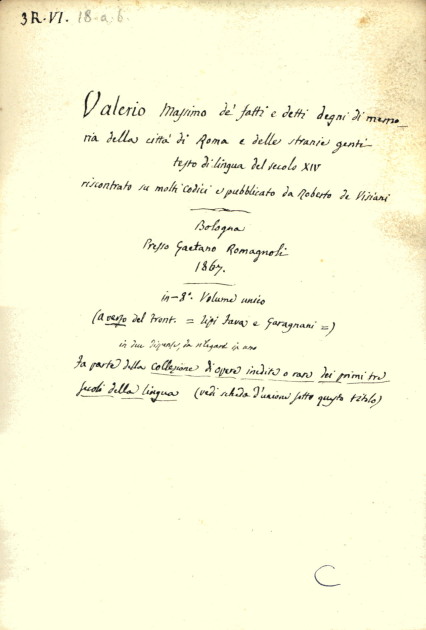 3R.VI. 18-a.6.
Valerio Massimo de' fatti e detti degni di memo_
ria della città di Roma e delle stranie genti
testo di lingua del secolo XIV
riscontrato su molti codici e pubblicato da Roberto de Visiani
Bologna
Presso Gaetano Romagnoli
1867.
in-8°. Volume unico
(a verso del front. = Tipi Fava e Garagnani =)
in due dispense, da in uno
Fa parte della Collezione di opere inedite o rare dei primi tre
secoli della lingua (vedi scheda d'unione sotto questo titolo)
C